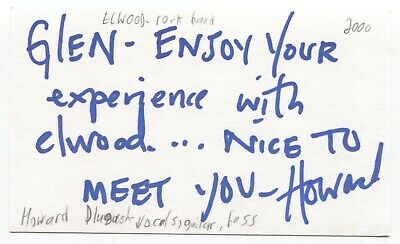 ELWOOD - rock band
2000
GLEN - ENJOY YOUR
experience with
elwood... NICE TO
MEET YOU - Howard
Howard Dlugash - vocals, guitar, bass